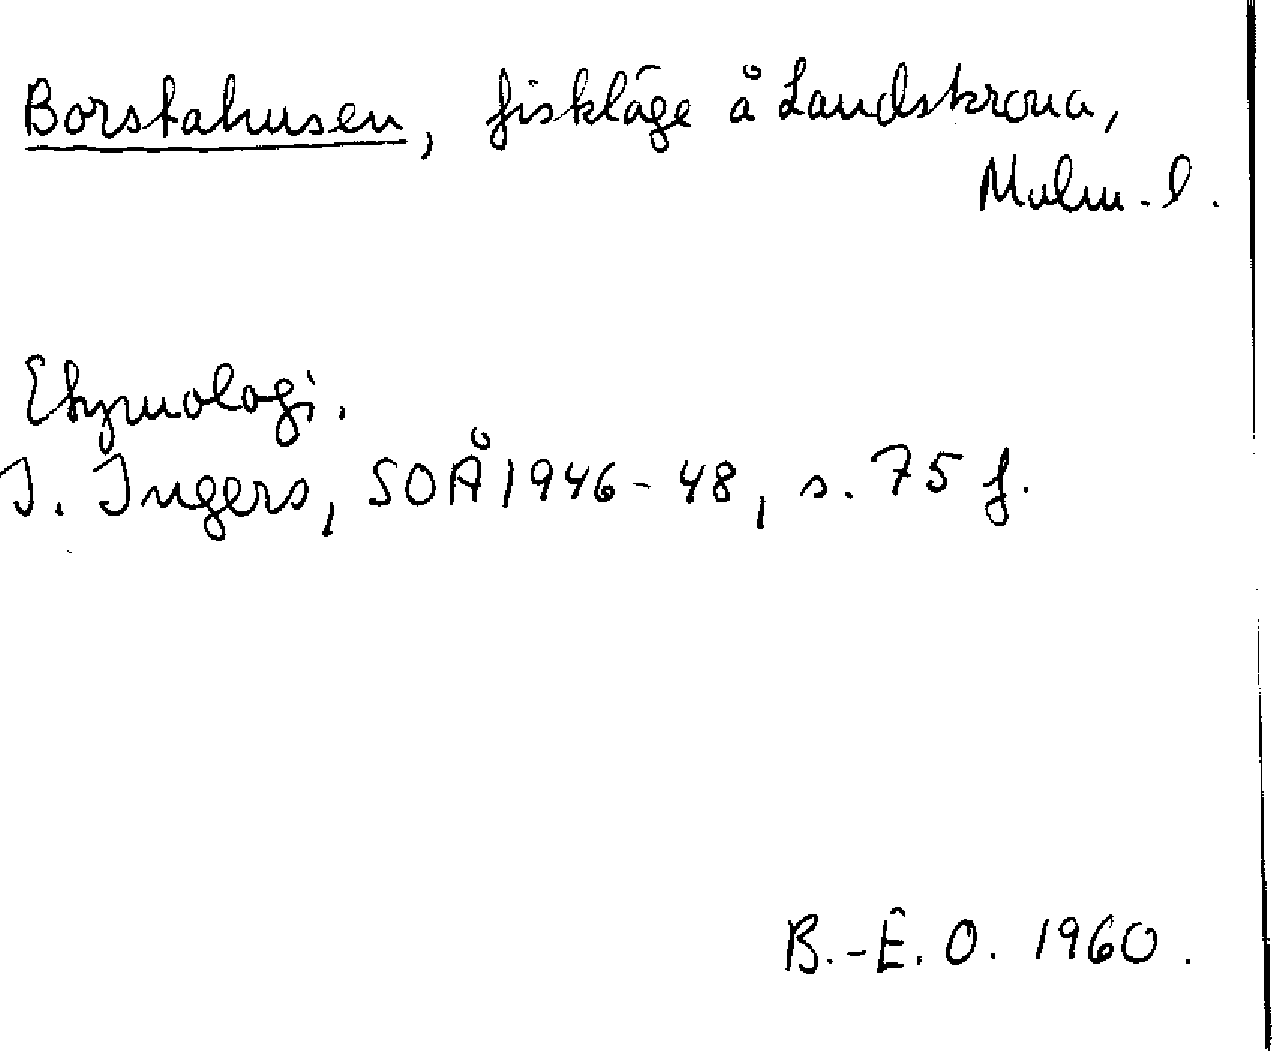 Borstahusen, fiskläge å Landskrona,
Malm. l.
Etymologi.
I. Ingers, SOÅ 1946-48, s. 75 f.
B.-E. O. 1960.